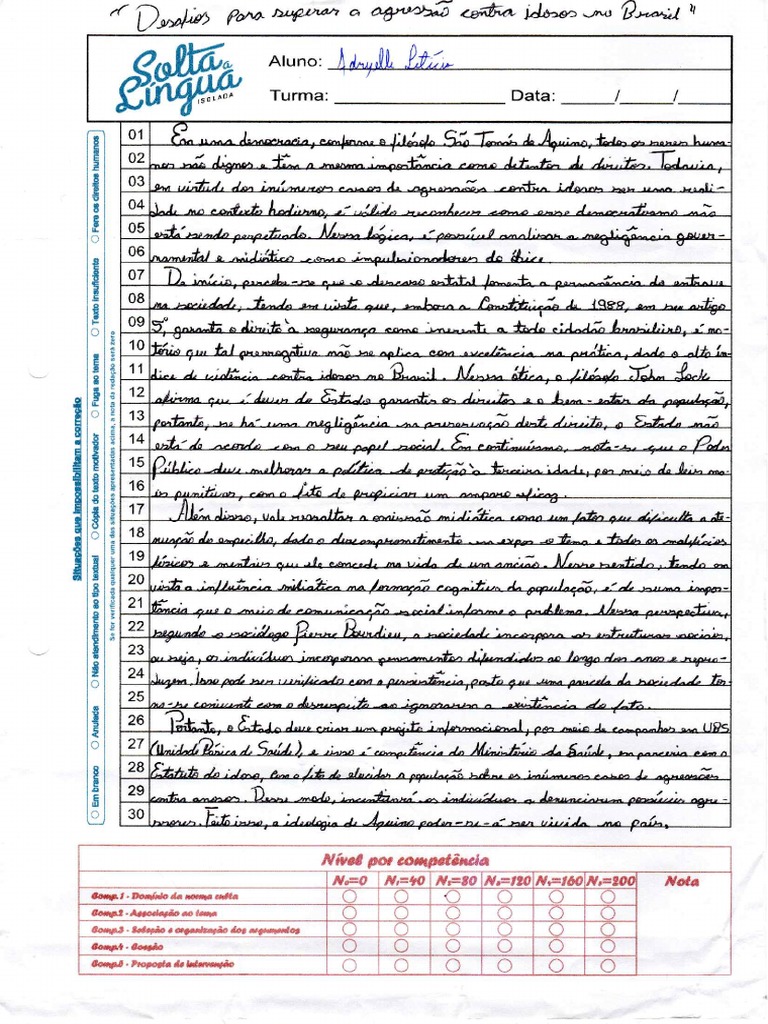 "Desafios para superar a agressão contra idosos no Brasil"
Solta a Língua
ISOLADA
Aluno: Adryelle Letícia
Turma: Data: / /
01 Em uma democracia, conforme o filósofo São Tomás de Aquino, todos os seres huma-
02 nos são dignos e têm a mesma importância como detentos de direitos. Todavia,
03 em virtude dos inúmeros casos de agressões contra idosos ser uma reali-
04 dade no contexto hodierno, é válido reconhecer como esse democratismo não
05 está sendo perpetuado. Nessa lógica, é possível analisar a negligência gover-
06 namental e midiática como impulsionadores do óbice.
07 De início, percebe-se que o descaso estatal fomenta a permanência do entrave
08 na sociedade, tendo em vista que, embora a Constituição de 1988, em seu artigo
09 5º, garanta o direito à segurança como inerente a todo cidadão brasileiro, é no-
10 tório que tal prerrogativa não se aplica com excelência na prática, dado o alto ín-
11 dice de violência contra idosos no Brasil. Nessa ótica, o filósofo John Lock
12 afirma que é dever do Estado garantir os direitos e o bem-estar da população,
13 portanto, se há uma negligência na preservação deste direito, o Estado não
14 está de acordo com o seu papel social. Em continuísmo, nota-se que o Poder
15 Público deve melhorar a política de proteção à terceira idade, por meio de leis ma-
16 is punitivas, com o fito de propiciar um amparo eficaz.
17 Além disso, vale ressaltar a omissão midiática como um fator que dificulta a ate-
18 nuação do empecilho, dado o descomprometimento em expor o tema e todos os malefícios
19 físicos e mentais que ele concede na vida de um ancião. Nesse sentido, tendo em
20 vista a influência midiática na formação cognitiva da população, é de suma impor-
21 tância que o meio de comunicação social informe o problema. Nessa perspectiva,
22 segundo o sociólogo Pierre Bourdieu, a sociedade incorpora as estruturas sociais,
23 ou seja, os indivíduos incorporam pensamentos difundidos ao longo dos anos e repro-
24 duzem. Isso pode ser verificado com a persistência, posto que uma parcela da sociedade tor-
25 na-se conivente com o desrespeito ao ignorarem a existência do fato.
26 Portanto, o Estado deve criar um projeto informacional, por meio de campanhas em UBS
27 (Unidade Básica de Saúde), e isso é competência do Ministério da Saúde, em parceria com o
28 Estatuto do idoso, com o fito de elucidar a população sobre os inúmeros casos de agressões
29 contra anosos. Desse modo, incentivará os indivíduos a denunciarem possíveis agre-
30 ssores. Feito isso, a ideologia de Aquino poder-se-á ser vivida no país.
Situações que impossibilitam a correção
Em branco Anulada Não atendimento ao tipo textual Cópia do texto motivador Fuga ao tema Texto insuficiente Fere os direitos humanos
Se for verificada qualquer uma das situações apresentadas acima, a nota da redação será zero
Nível por competência
N₀=0 N₁=40 N₂=80 N₃=120 N₄=160 N₅=200 Nota
Comp.1 - Domínio da norma culta
Comp.2 - Associação ao tema
Comp.3 - Seleção e organização dos argumentos
Comp.4 - Coesão
Comp.5 - Proposta de intervenção